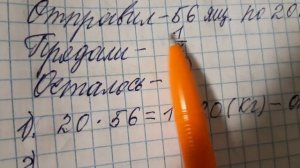 Отправил - 56 ящ. по 20
Продали -
Осталось -
1). 20 · 56 = 1 20 (кг) -